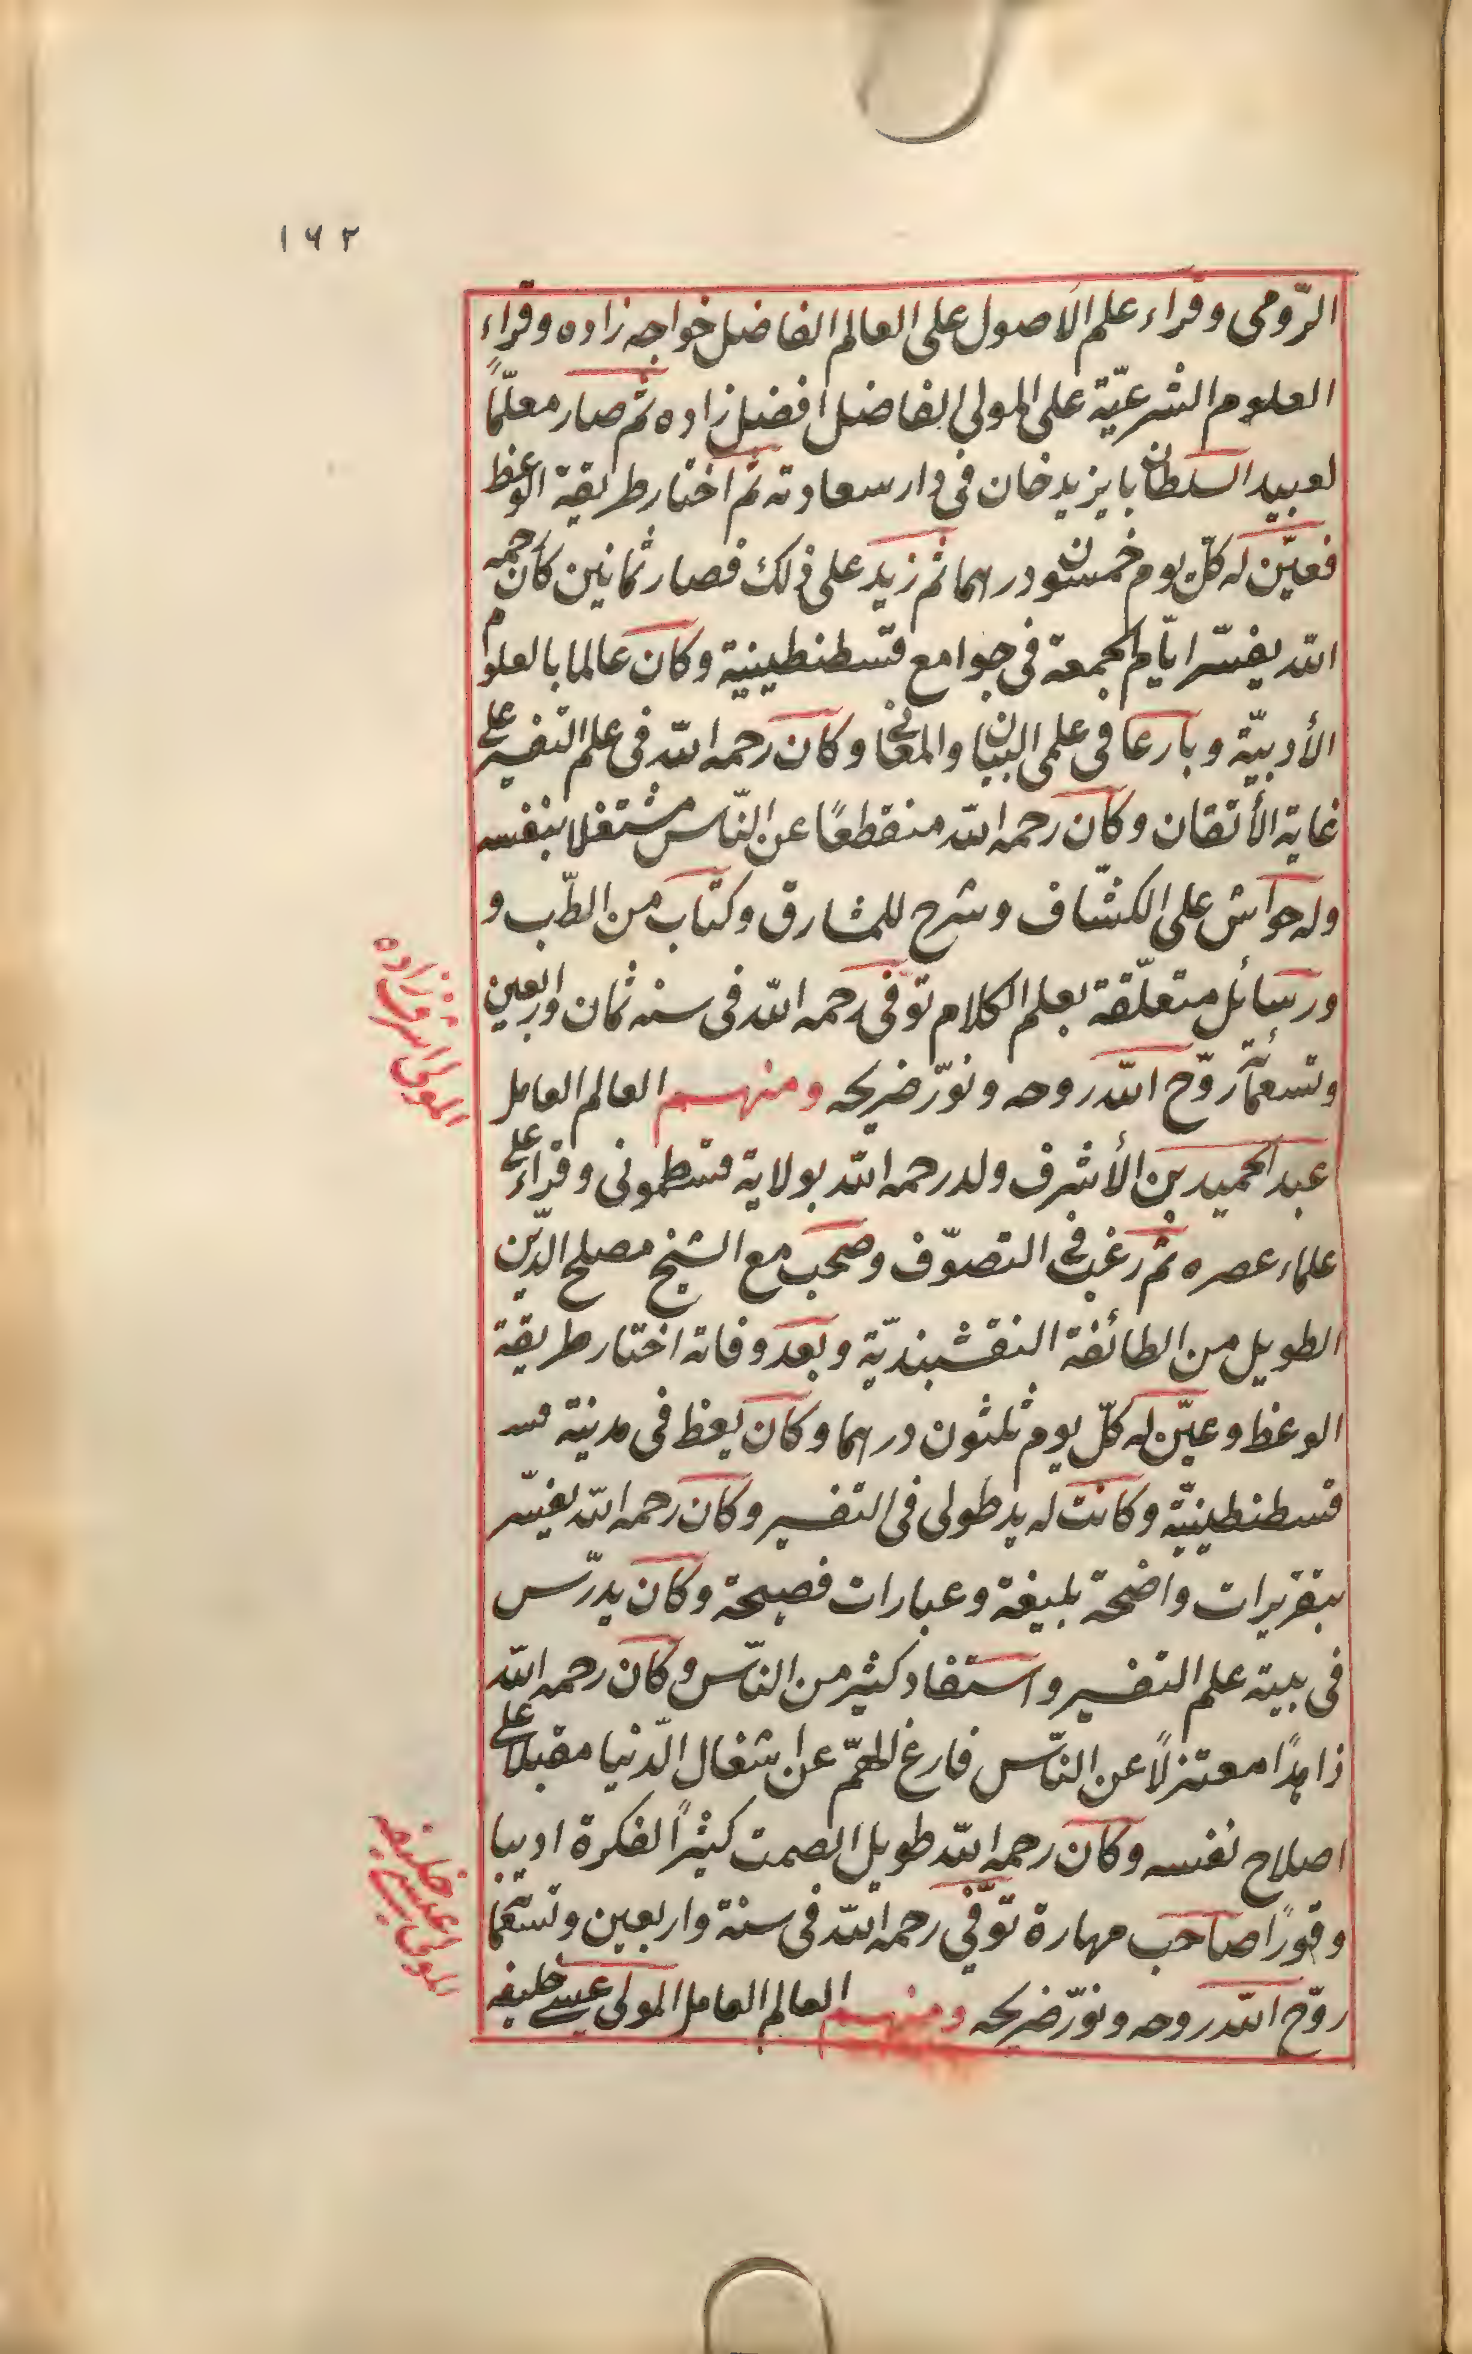 ١٦٢
الرّومى وقراء علم الاصول على العالم الفاضل خواجه زاده وقراء
العلوم الشرعيّة على المولى الفاضل افضل زاده ثم صار معلّماً
لعبيد السلطان بايزيد خان فى دار سعادته ثم اختار طريقة الوعظ
فعيّن له كلّ يوم خمسون درهما ثم زيد على ذلك فصار ثمانين كان رحمه
الله يفسّر ايّام الجمعة فى جوامع قسطنطينية وكان عالما بالعلوم
الأدبيّة وبارعا فى علمى البيان والمعانى وكان رحمه الله فى علم التفسير على
غاية الأتقان وكان رحمه الله منقطعًا عن النّاس مشتغلا بنفسه
وله حواش على الكشّاف وشرح للمشارق وكتاب من الطّب و
ورسائل متعلّقة بعلم الكلام توفى رحمه الله فى سنه ثمان واربعين
وتسعمائة روّح الله روحه ونوّر ضريحه ومنهم العالم العامل
المولى اشرف زاده
عبد الحميد بن الأشرف ولد رحمه الله بولاية قسطمونى وقراء على
علماء عصره ثم رغب فى التصوّف وصحب مع الشيخ مصلح الدّين
الطويل من الطائفة النقشبنديّة وبعد وفاته اختار طريقة
الوعظ وعيّن له كلّ يوم ثلثون درهما وكان يعظ فى مدينة قسـ
قسطنطينيّة وكانت له يد طولى فى التفسير وكان رحمه الله يفسّر
بتقريرات واضحة بليغة وعبارات فصيحة وكان يدرّس
فى بيته علم التفسير واستفاد كثير من النّاس وكان رحمه الله
زاهدًا معتزلًا عن النّاس فارغ الهمّ عن اشغال الدّنيا مقبلا على
اصلاح نفسه وكان رحمه الله طويل الصمت كثيرًا لفكرة اديبا
وقورًا صاحب مهارة توّفى رحمه الله فى سنة واربعين وتسعمائة
روّح الله روحه ونوّر ضريحه ومنهم العالم العامل المولى عيسى خليفه
المولى عيسى خليفه